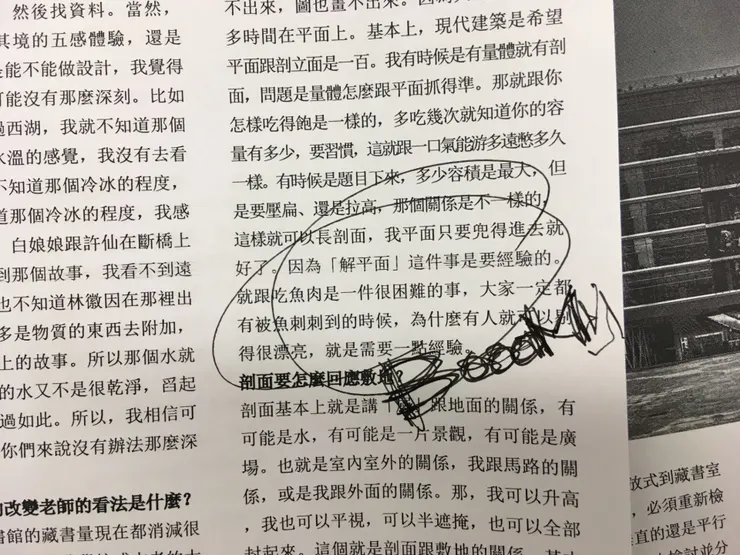 然後找資料。當然，
其境的五感體驗，還是
是能不能做設計，我覺得
可能沒有那麼深刻。比如
過西湖，我就不知道那個
水溫的感覺，我沒有去看
不知道那個冷冰的程度，
道那個冷冰的程度，我感
白娘娘跟許仙在斷橋上
到那個故事，我看不到遠
也不知道林徽因在那裡出
多是物質的東西去附加，
上的故事。所以那個水就
的水又不是很乾淨，舀起
過如此。所以，我相信可
你們來說沒有辦法那麼深
改變老師的看法是什麼？
書館的藏書量現在都消減很
不出來，圖也畫不出來。因為
多時間在平面上。基本上，現代建築是希望
平面跟剖立面是一百。我有時候是有量體就有剖
面，問題是量體怎麼跟平面抓得準。那就跟你
怎樣吃得飽是一樣的，多吃幾次就知道你的容
量有多少，要習慣，這就跟一口氣能游多遠憋多久
一樣。有時候是題目下來，多少容積是最大，但
是要壓扁、還是拉高，那個關係是不一樣的，
這樣就可以長剖面，我平面只要兜得進去就
好了。因為「解平面」這件事是要經驗的。
就跟吃魚肉是一件很困難的事，大家一定都
有被魚刺刺到的時候，為什麼有人就可以剔
得很漂亮，就是需要一點經驗。
剖面要怎麼回應敷地？
剖面基本上就是講「 跟地面的關係，有
可能是水，有可能是一片景觀，有可能是廣
場。也就是室內室外的關係，我跟馬路的關
係，或是我跟外面的關係。那，我可以升高
，我也可以平視，可以半遮掩，也可以全部
封起來。這個就是剖面跟敷地的關係。基
放式到藏書室
，必須重新檢
直的還是平行